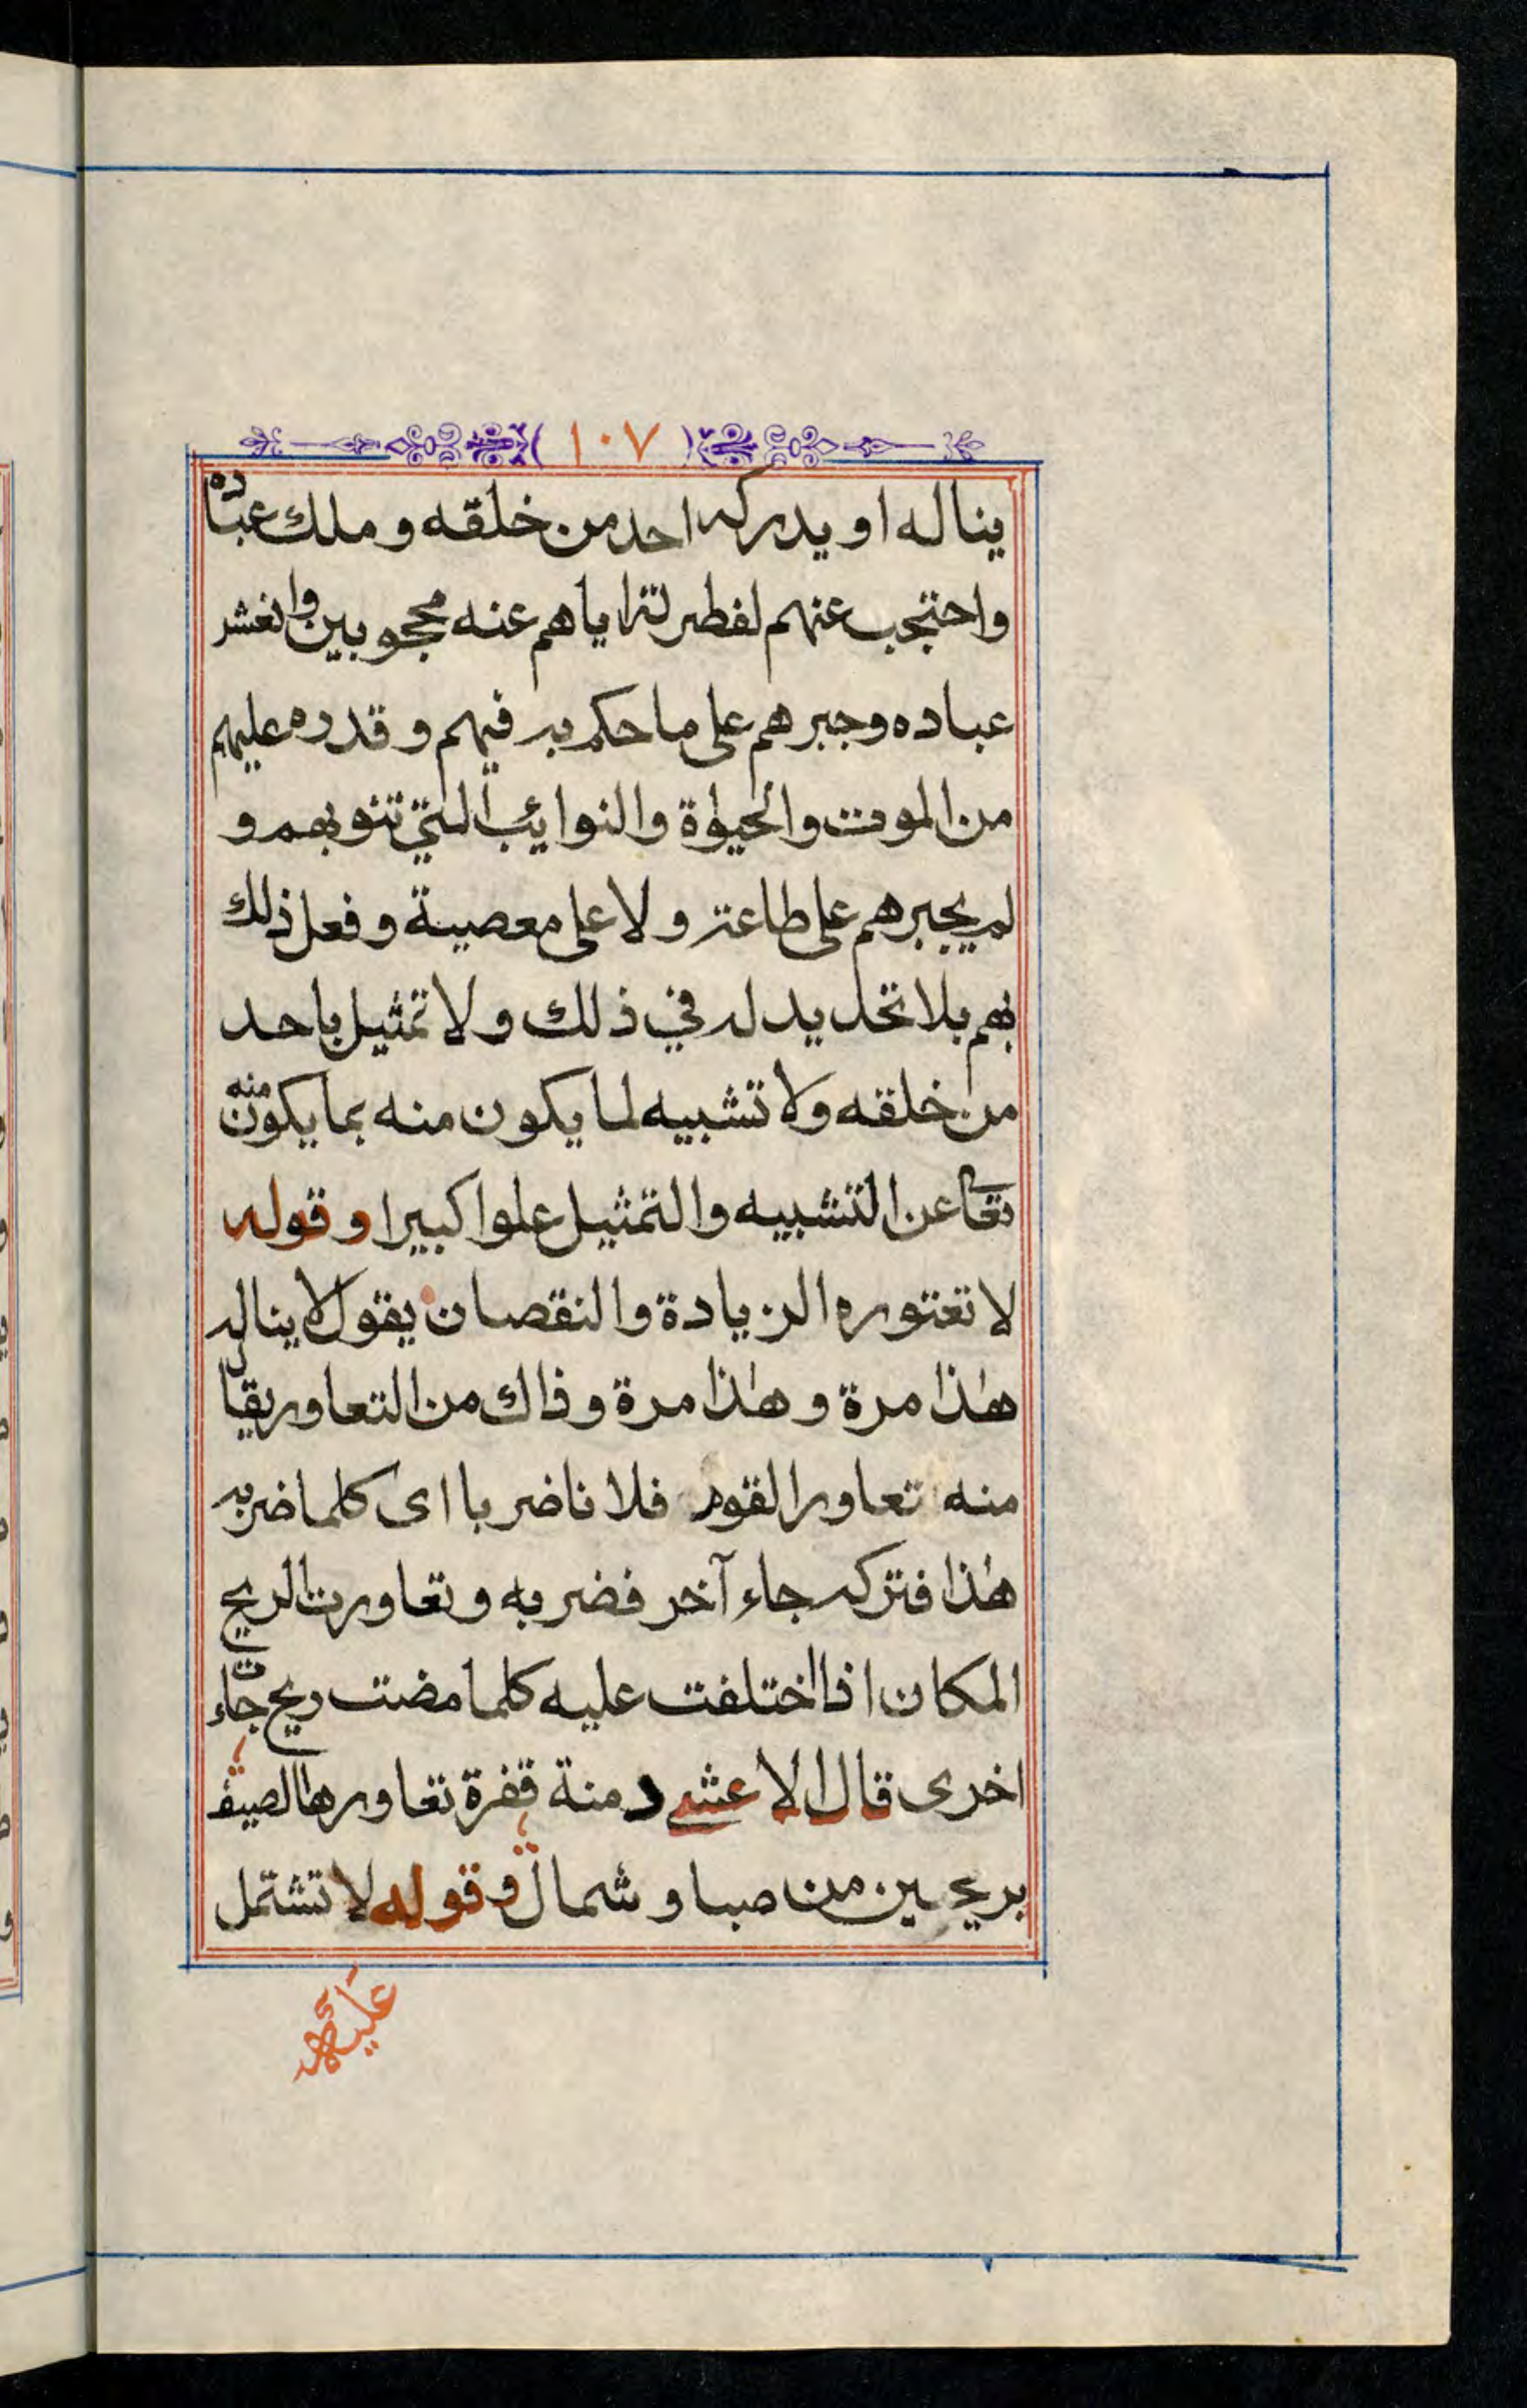 ١٠٧
يناله او يدركه احد من خلقه و ملك عباده
واحتجب عنهم لفطرته اياهم عنه محجوبين وانغشر
عباده وجبرهم على ما حكم به فيهم و قدره عليهم
من الموت والحيوٰة والنوايئب التي تنوبهم و
لم يجبرهم على طاعته ولا على معصيبة و فعل ذلك
بهم بلا تحديد له في ذلك ولا تمثيل باحد
من خلقه ولا تشبيه لما يكون منه بما يكون منه
تعا عن التشبيه والتمثيل علوا كبيرا وقوله
لا تعتوره الزيادة والنقصان يقول لا يناله
هٰذا مرة و هٰذا مرة وذاك من التعاور يقال
منه تعاور القوم فلانا ضربا اى كلما ضربه
هٰذا فتركه جاء آخر فضربه وتعاورت الريح
المكان اذا اختلفت عليه كلما مضت ريح جاءت
اخرى قال الاعشى دمنة قفرة تعاورها الصيف
بريحين من صبا و شمال وقوله لا تشتمل
عليه